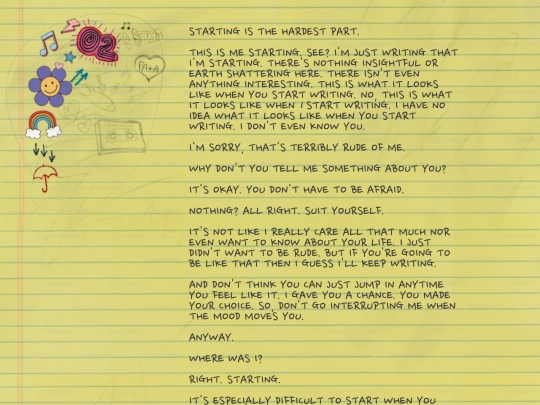 STARTING IS THE HARDEST PART.
THIS IS ME STARTING. SEE? I'M JUST WRITING THAT
I'M STARTING. THERE'S NOTHING INSIGHTFUL OR
EARTH SHATTERING HERE. THERE ISN'T EVEN
ANYTHING INTERESTING. THIS IS WHAT IT LOOKS
LIKE WHEN YOU START WRITING. NO, THIS IS WHAT
IT LOOKS LIKE WHEN I START WRITING. I HAVE NO
IDEA WHAT IT LOOKS LIKE WHEN YOU START
WRITING. I DON'T EVEN KNOW YOU.
I'M SORRY, THAT'S TERRIBLY RUDE OF ME.
WHY DON'T YOU TELL ME SOMETHING ABOUT YOU?
IT'S OKAY. YOU DON'T HAVE TO BE AFRAID.
NOTHING? ALL RIGHT. SUIT YOURSELF.
IT'S NOT LIKE I REALLY CARE ALL THAT MUCH NOR
EVEN WANT TO KNOW ABOUT YOUR LIFE. I JUST
DIDN'T WANT TO BE RUDE. BUT IF YOU'RE GOING TO
BE LIKE THAT THEN I GUESS I'LL KEEP WRITING.
AND DON'T THINK YOU CAN JUST JUMP IN ANYTIME
YOU FEEL LIKE IT. I GAVE YOU A CHANCE. YOU MADE
YOUR CHOICE. SO, DON'T GO INTERRUPTING ME WHEN
THE MOOD MOVES YOU.
ANYWAY.
WHERE WAS I?
RIGHT. STARTING.
IT'S ESPECIALLY DIFFICULT TO START WHEN YOU
02